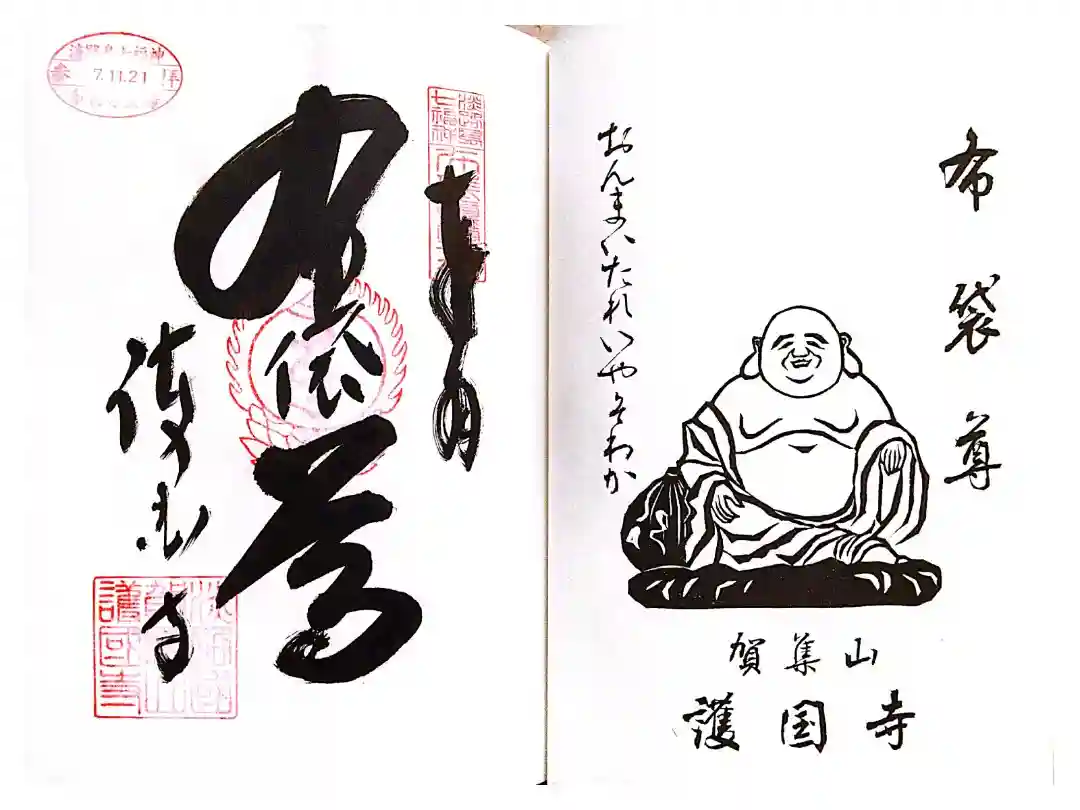 布袋尊
おんまいたれいやそわか
賀集山
護国寺
淡路島
七福神
布袋尊
護国寺
淡路國
賀集山
護國寺
淡路島七福神
参拝
7.11.21